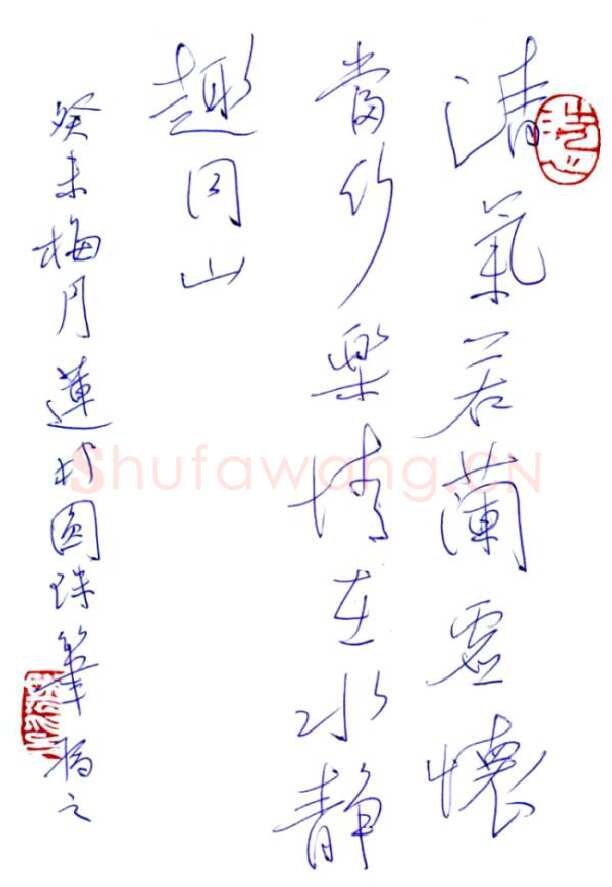 清氣若蘭虛懷
當竹樂情在水靜
趣同山
癸未梅月蓮村圓珠筆之
Shufawang.CN